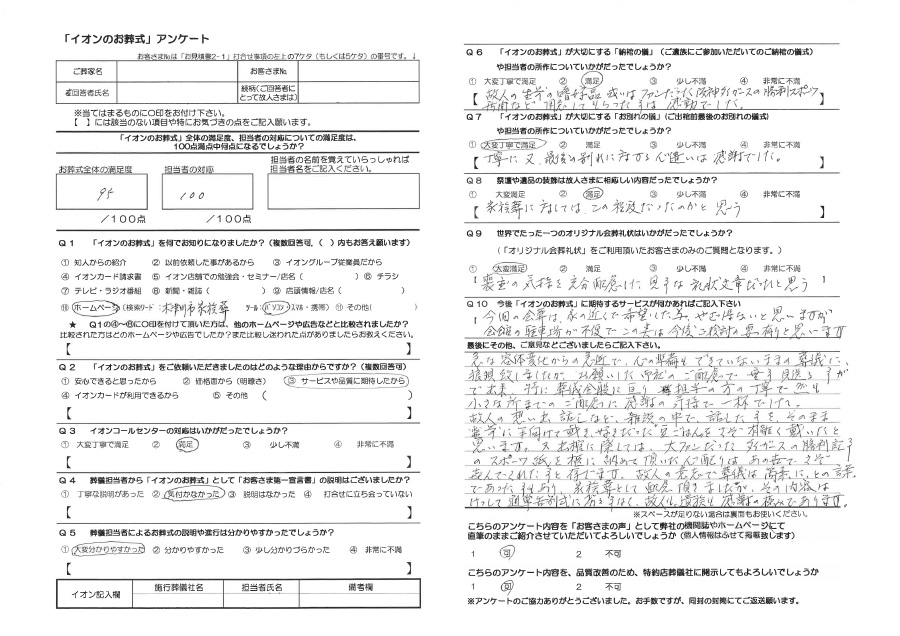 「イオンのお葬式」アンケート
お客さま№は「お見積書2-1」打合せ事項の左上の7ケタ（もしくは5ケタ）の番号です。↓
ご葬家名
お客さま№
ご回答者氏名
続柄(ご回答者にとって故人さまは)
※当てはまるものに○印をお付け下さい。
【　】には該当のない項目や特にお気づきの点をご記入願います。
「イオンのお葬式」全体の満足度、担当者の対応についての満足度は、
100点満点中何点になるでしょうか？
お葬式全体の満足度
担当者の対応
担当者の名前を覚えていらっしゃれば
担当者名をご記入ください。
95
100
/100点
/100点
Q1 「イオンのお葬式」を何でお知りになりましたか？（複数回答可、（ ）内もお答え願います）
① 知人からの紹介 ② 以前依頼した事があるから ③ イオングループ従業員だから
④ イオンカード請求書 ⑤ イオン店舗での勉強会・セミナー/店名（ ）⑥ チラシ
⑦ テレビ・ラジオ番組 ⑧ 新聞・雑誌（ ）⑨ 店頭情報/店名（ ）
⑩ ホームページ（検索ワード：木津川市家族葬 ツール：パソコン・スマホ・携帯）⑪ その他（ ）
★ Q1の④～⑥に○印を付けて頂いた方は、他のホームページや広告などと比較されましたか？
比較された方はどのホームページや広告でしたか？また比較し迷われた点がありましたらお教えください。
【 】
Q2 「イオンのお葬式」をご依頼いただきましたのはどのような理由からですか？（複数回答可）
① 安心できると思ったから ② 価格面から（明確さ） ③ サービスや品質に期待したから
④ イオンカードが利用できるから ⑤ その他（ ）
【 】
Q3 イオンコールセンターの対応はいかがだったでしょうか？
① 大変丁寧で満足 ② 満足 ③ 少し不満 ④ 非常に不満
【 】
Q4 葬儀担当者から「イオンのお葬式」として「お客さま第一宣言書」の説明はございましたか？
① 丁寧な説明があった ② 気付かなかった ③ 説明はなかった ④ 打合せに立ち会っていない
【 】
Q5 葬儀担当者によるお葬式の説明や進行は分かりやすかったでしょうか？
① 大変分かりやすかった ② 分かりやすかった ③ 少し分かりづらかった ④ 非常に不満
【 】
イオン記入欄
施行葬儀社名
担当者氏名
備考欄
Q6 「イオンのお葬式」が大切にする「納棺の儀」（ご遺族にご参加いただいてのご納棺の儀式）
や担当者の所作についていかがだったでしょうか？
① 大変丁寧で満足 ② 満足 ③ 少し不満 ④ 非常に不満
【 故人の生前の嗜好品或いはファンだった阪神タイガースの勝利スポーツ
新聞など用意してもらった事は感動でした。 】
Q7 「イオンのお葬式」が大切にする「お別れの儀」（ご出棺前最後のお別れの儀式）
や担当者の所作についていかがだったでしょうか？
① 大変丁寧で満足 ② 満足 ③ 少し不満 ④ 非常に不満
【 丁寧に又、最後の別れに対する心遣いは感謝でした。 】
Q8 祭壇や遺品の装飾は故人さまに相応しい内容だったでしょうか？
① 大変満足 ② 満足 ③ 少し不満 ④ 非常に不満
【 家族葬に対しては、この程度だったのかと思う 】
Q9 世界でたった一つのオリジナル会葬礼状はいかがだったでしょうか？
（「オリジナル会葬礼状」をご利用頂いたお客さまのみのご質問となります。）
① 大変満足 ② 満足 ③ 少し不満 ④ 非常に不満
【 喪主の気持を充分配慮した、見事な礼状文章だったと思う 】
Q10 今後「イオンのお葬式」に期待するサービスが何かあればご記入下さい
今回の会葬は、家の近くで希望した為、やむ得ないと思いますが
会館の駐車場が不便でこの点は今後ご検討の要有りと思います
最後にその他、ご意見などございましたらご記入下さい。
急な容体変化からの急逝で、心の準備もできていないままの葬儀に、
狼狽致しましたが、お願いした 御社のご配慮で無事見送る事が
出来、特に葬儀会館に回り 担当の方の丁寧で然も
小さな所までのご配慮に感謝の気持で一杯でした。
故人の想い出話しなど、雑談の中で、話した事をそのまま
思います。又出棺に際しては、大ファンだったタイガースの勝利記事
のスポーツ紙を棺に納めて頂いた心配りはあの世でさぞ
喜んでくれた事と存じます。故人の意志で葬儀は簡素にとの言葉
であった事もあり、家族葬として配慮頂きましたが、その内容は
けっして通常告別式に劣る事なく、故人も遺族も感謝の極みであります。
※スペースが足りない場合は裏面もお使いください。
こちらのアンケート内容を「お客さまの声」として弊社の機関誌やホームページにて
直筆のままご紹介させていただいてよろしいでしょうか（個人情報はふせて掲載致します）
1 可 2 不可
こちらのアンケート内容を、品質改善のため、特約店葬儀社に開示してもよろしいでしょうか
1 可 2 不可
※アンケートのご協力ありがとうございました。お手数ですが、同封の封筒にてご返送願います。